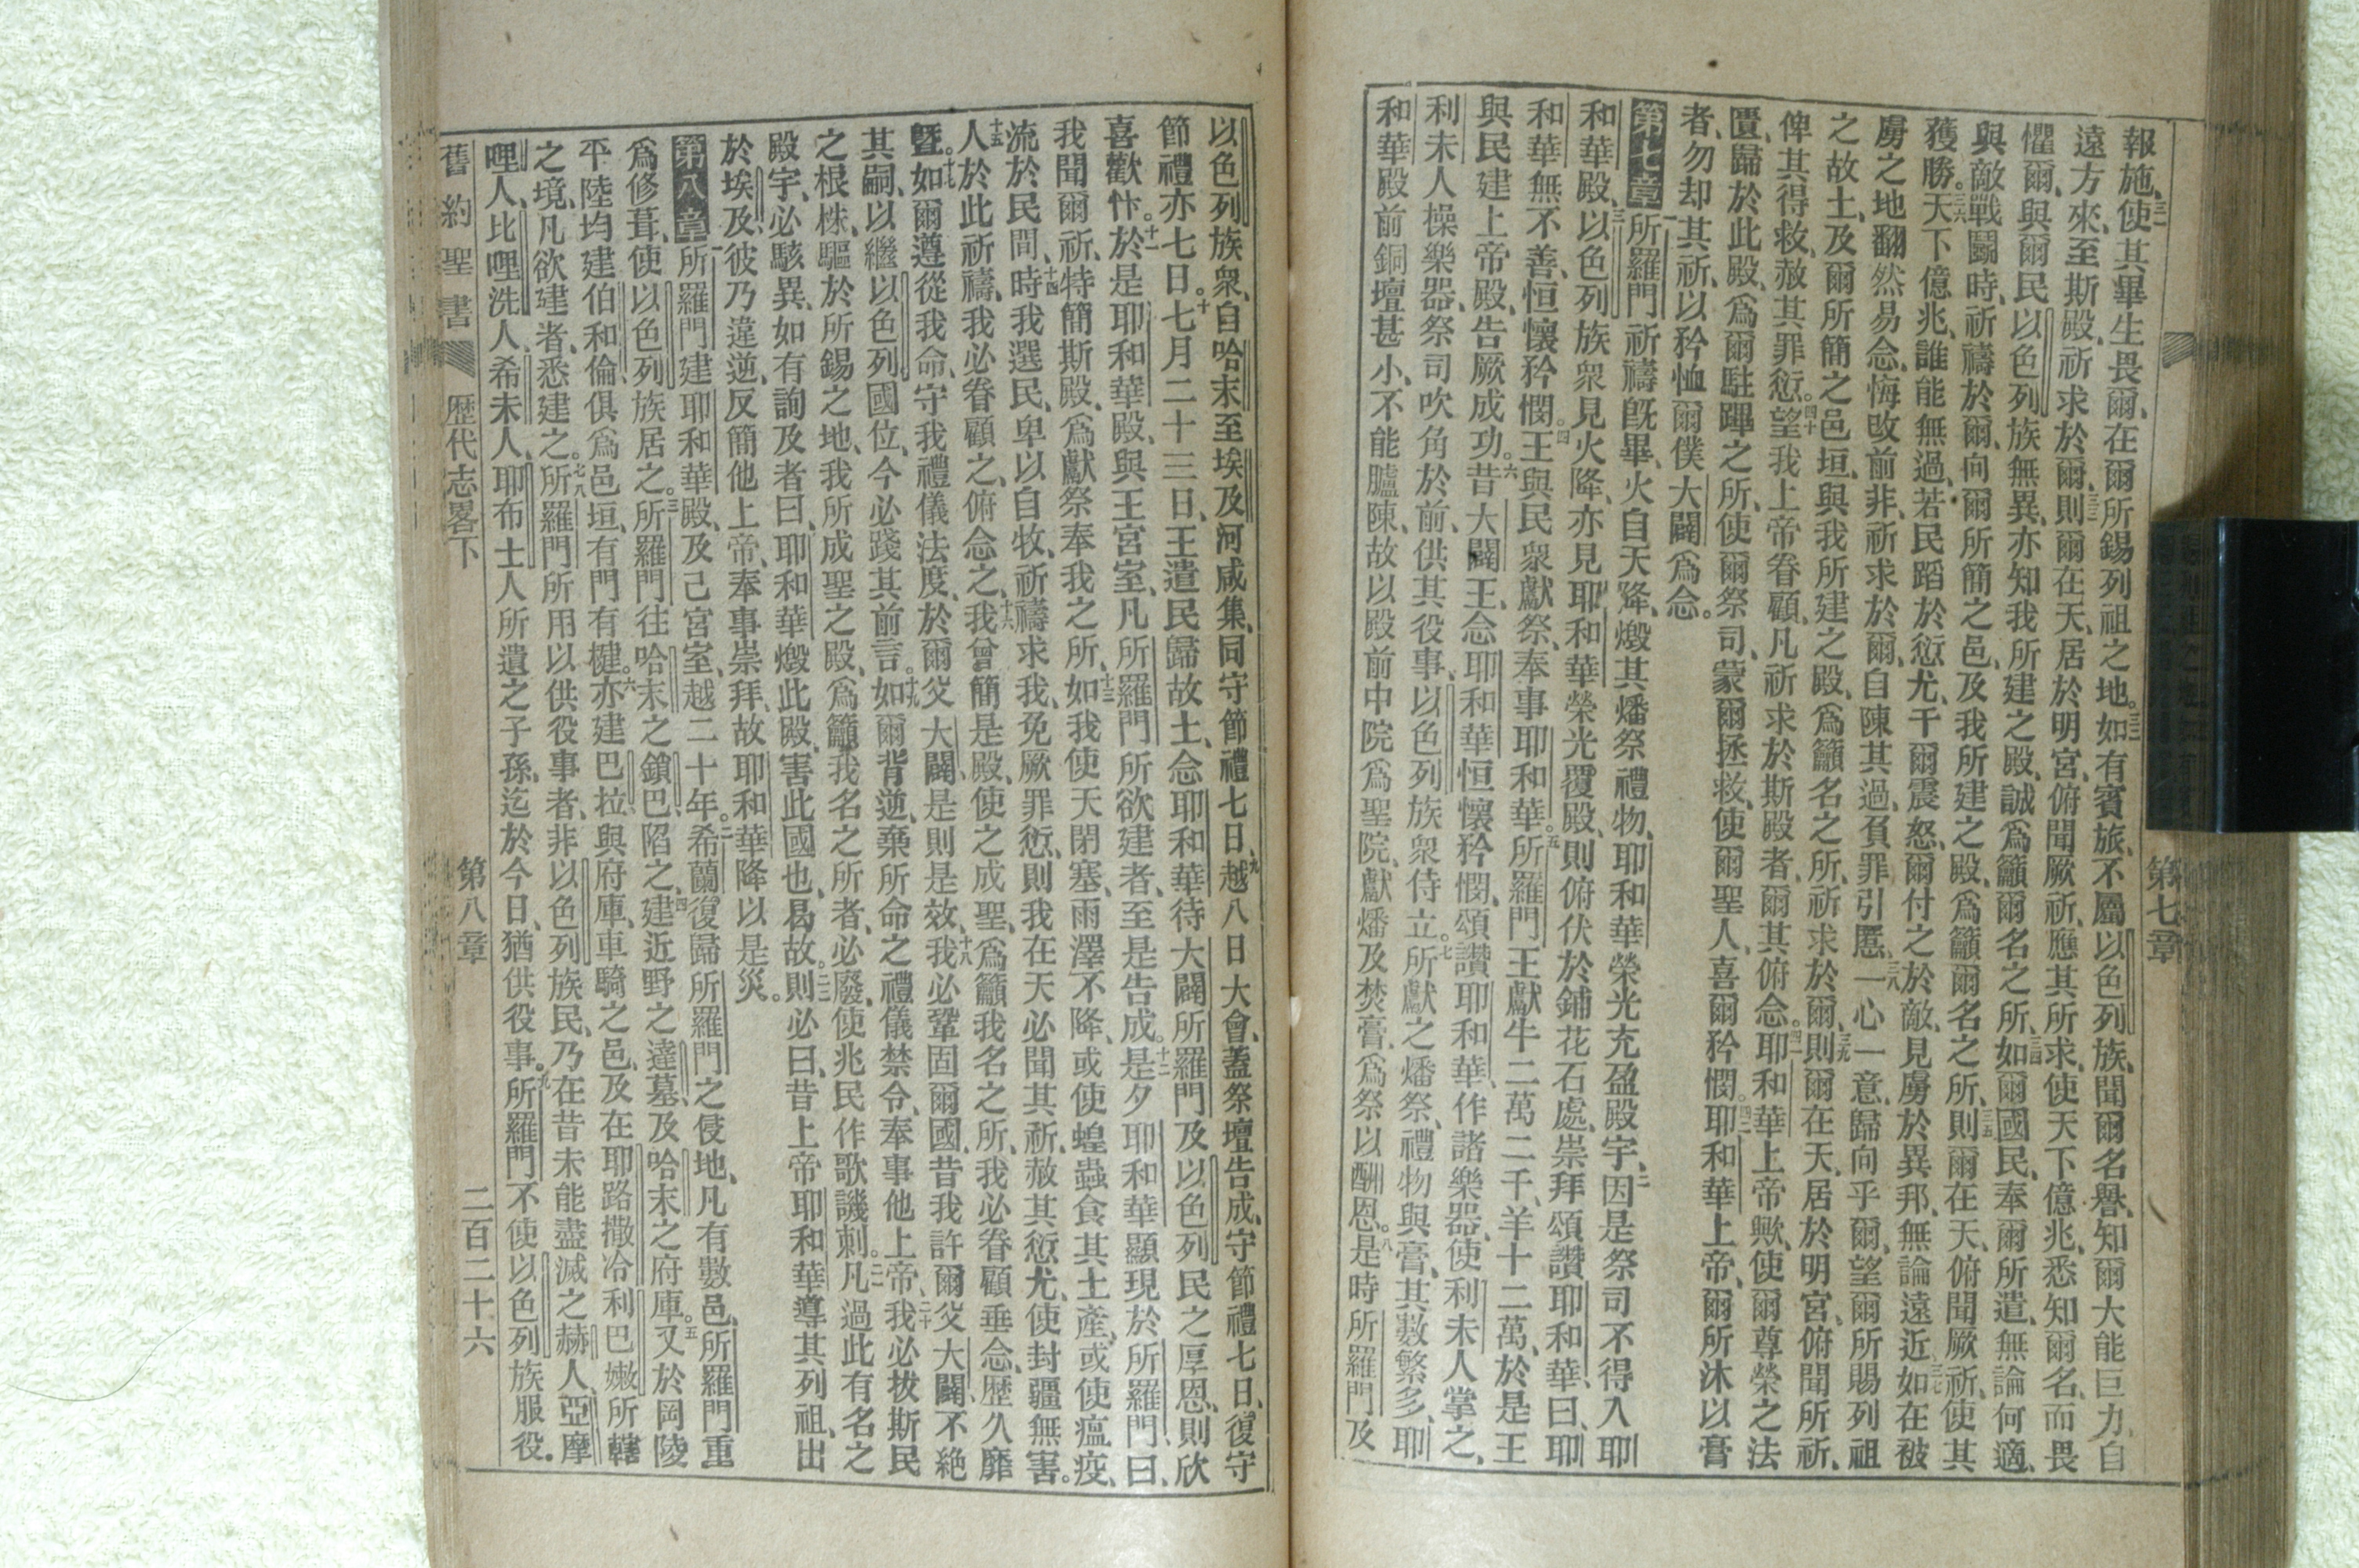 報施、三一使其畢生畏爾、在爾所錫列祖之地。三二如有賓旅、不屬以色列族、聞爾名譽、知爾大能巨力、自
遠方來、至斯殿、祈求於爾、三三則爾在天、居於明宮、俯聞厥祈、應其所求、使天下億兆、悉知爾名、而畏
懼爾、與爾民以色列族無異、亦知我所建之殿、誠爲籲爾名之所、三四如爾國民、奉爾所遣、無論何適、
與敵戰鬬時、祈禱於爾、向爾所簡之邑、及我所建之殿、爲籲爾名之所、三五則爾在天、俯聞厥祈、使其
獲勝。三六天下億兆、誰能無過、若民蹈於愆尤、干爾震怒、爾付之於敵、見虜於異邦、無論遠近、三七如在被
虜之地、翻然易念、悔改前非、祈求於爾、自陳其過、負罪引慝、三八一心一意、歸向乎爾、望爾所賜列祖
之故土、及爾所簡之邑垣、與我所建之殿、爲籲名之所、祈求於爾、三九則爾在天、居於明宮、俯聞所祈、
俾其得救、赦其罪愆。四十望我上帝眷顧、凡祈求於斯殿者、爾其俯念。四一耶和華上帝歟、使爾尊榮之法
匱、歸於此殿、爲爾駐蹕之所、使爾祭司、蒙爾拯救、使爾聖人、喜爾矜憫。四二耶和華上帝、爾所沐以膏
者、勿却其祈、以矜恤爾僕大闢爲念。
第七章 一所羅門祈禱旣畢、火自天降、燬其燔祭禮物、耶和華榮光充盈殿宇、二因是祭司不得入耶
和華殿、三以色列族衆見火降、亦見耶和華榮光覆殿、則俯伏於鋪花石處、崇拜頌讚耶和華、曰、耶
和華無不善、恒懷矜憫。四王與民衆獻祭、奉事耶和華。五所羅門王獻牛二萬二千、羊十二萬、於是王
與民建上帝殿、告厥成功。六昔大闢王、念耶和華恒懷矜憫、頌讚耶和華、作諸樂器、使利未人掌之、
利未人操樂器、祭司吹角於前、供其役事、以色列族衆侍立。七所獻之燔祭、禮物與膏、其數繁多、耶
和華殿前銅壇甚小、不能臚陳、故以殿前中院爲聖院、獻燔及焚膏、爲祭以酬恩。八是時所羅門及
第七章
以色列族衆、自哈末至埃及河咸集、同守節禮七日、九越八日大會、蓋祭壇告成、守節禮七日、復守
節禮亦七日。十七月二十三日、王遣民歸故土、念耶和華待大闢所羅門及以色列民之厚恩、則欣
喜歡忭。十一於是耶和華殿、與王宮室、凡所羅門所欲建者、至是告成。十二是夕耶和華顯現於所羅門、曰、
我聞爾祈、特簡斯殿、爲獻祭奉我之所、十三如我使天閉塞、雨澤不降、或使蝗蟲食其土產、或使瘟疫、
流於民間、十四時我選民、卑以自牧、祈禱求我、免厥罪愆、則我在天必聞其祈、赦其愆尤、使封疆無害。
十五人於此祈禱、我必眷顧之、俯念之、十六我曾簡是殿、使之成聖、爲籲我名之所、我必眷顧垂念、歷久靡
曁。十七如爾遵從我命、守我禮儀法度、於爾父大闢、是則是效、十八我必鞏固爾國、昔我許爾父大闢、不絕
其嗣、以繼以色列國位、今必踐其前言。十九如爾背逆、棄所命之禮儀禁令、奉事他上帝、二十我必拔斯民
之根株、驅於所錫之地、我所成聖之殿、爲籲我名之所者、必廢、使兆民作歌譏刺。二一凡過此有名之
殿宇、必駭異、如有詢及者曰、耶和華燬此殿、害此國也、曷故。二二則必曰、昔上帝耶和華導其列祖、出
於埃及、彼乃違逆、反簡他上帝、奉事崇拜、故耶和華降以是災。
第八章 一所羅門建耶和華殿、及己宮室、越二十年。二希蘭復歸所羅門之侵地、凡有數邑、所羅門重
爲修葺、使以色列族居之。三所羅門往哈末之鎖巴、陷之、四建近野之達墓、及哈末之府庫。五又於岡陵
平陸均建伯和倫、俱爲邑垣、有門有楗。六亦建巴拉、與府庫、車騎之邑、及在耶路撒冷利巴嫩所轄
之境、凡欲建者、悉建之。七八所羅門所用以供役事者、非以色列族民、乃在昔未能盡滅之赫人、亞摩
哩人、比哩洗人、希未人、耶布士人所遺之子孫、迄於今日、猶供役事。九所羅門不使以色列族服役。
舊約聖書 歷代志畧下 第八章 二百二十六